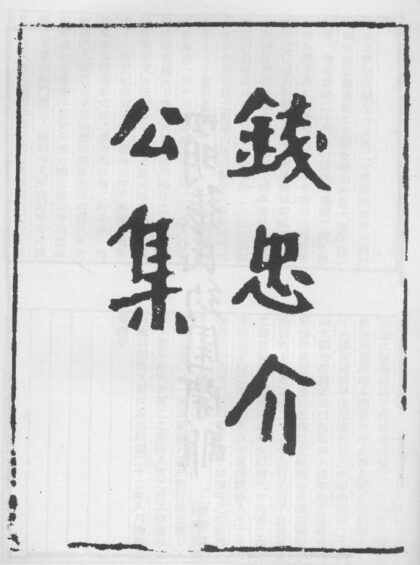 錢忠介
公集